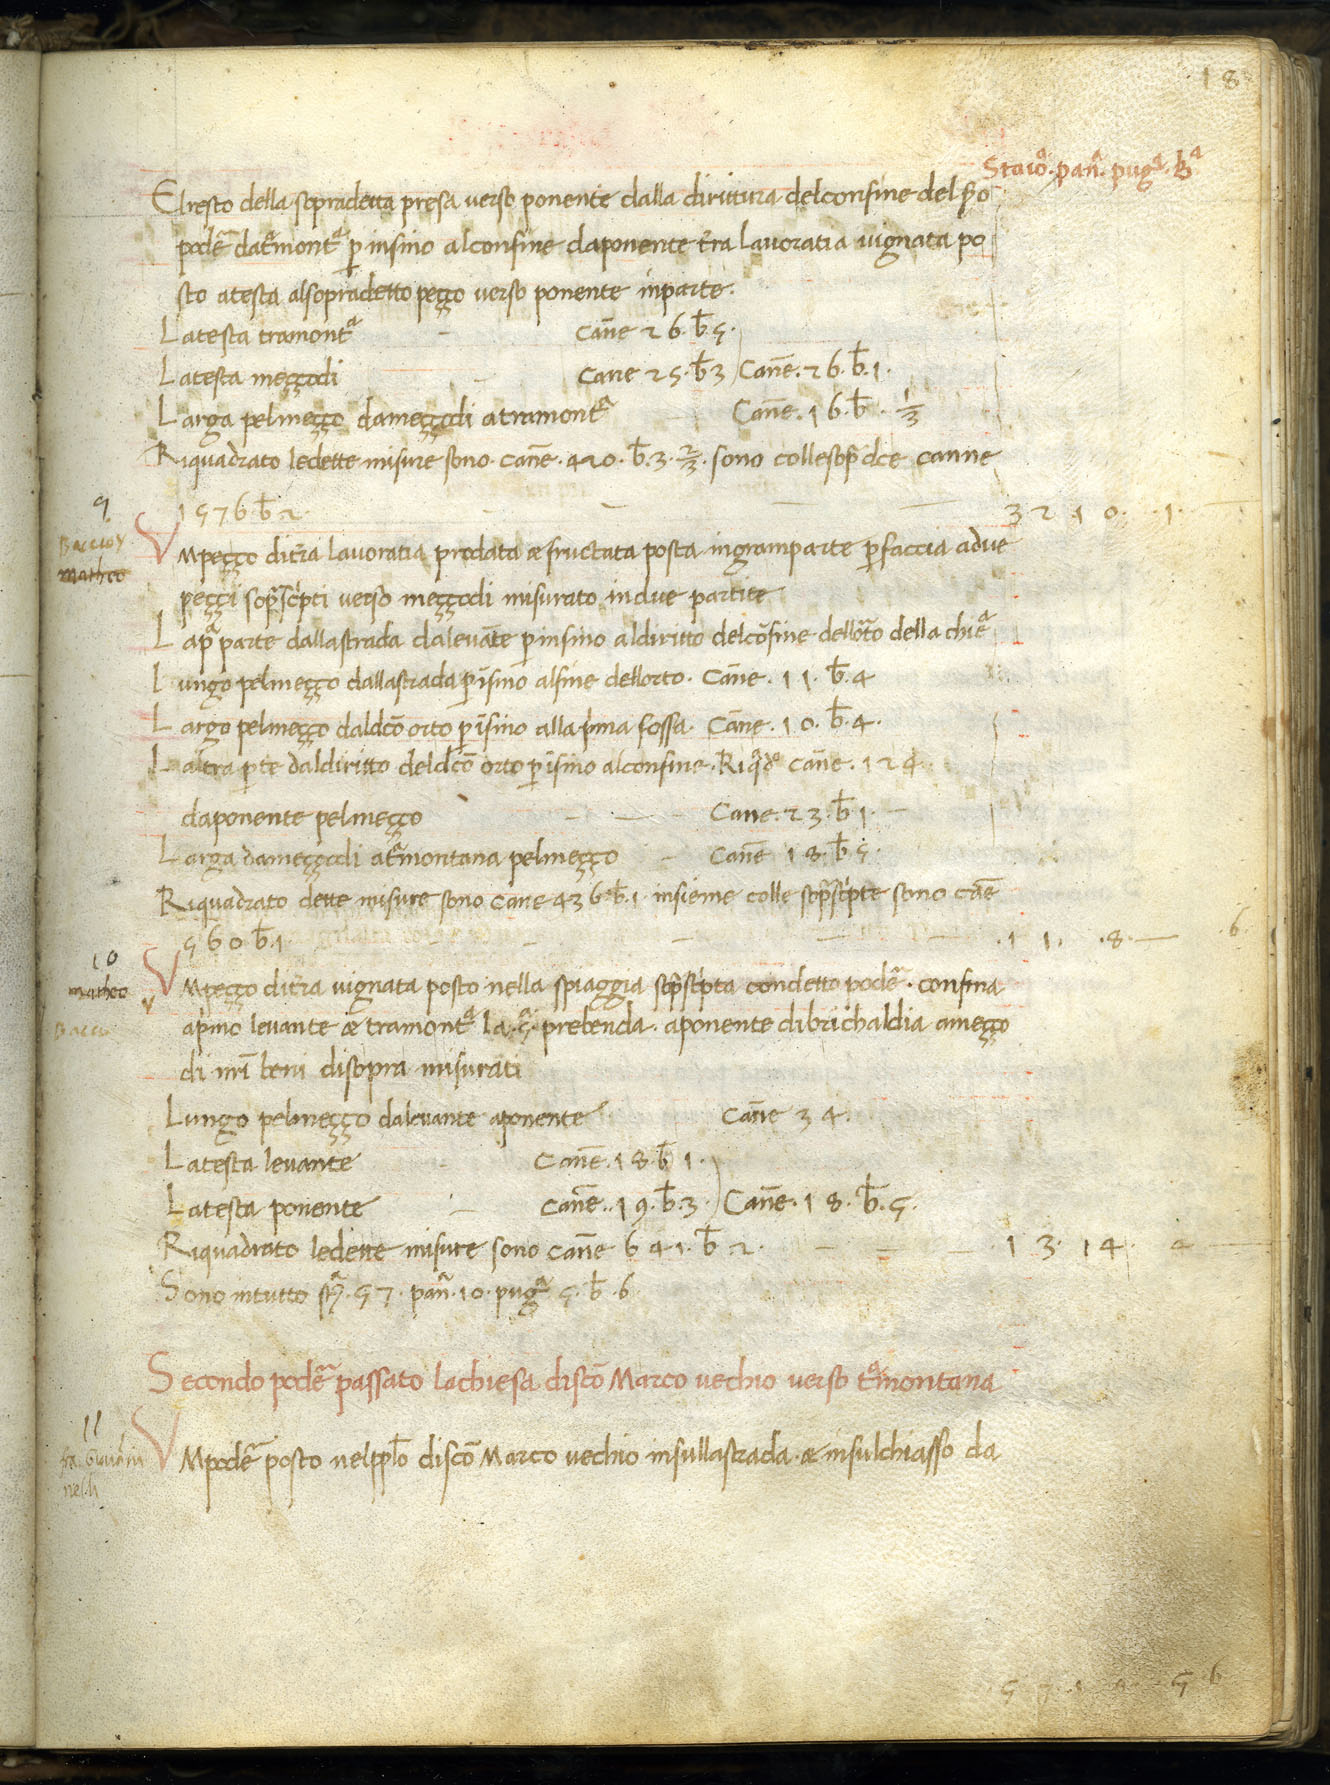 18
Staioª. panª. pugª. bª
El resto della sopradetta presa verso ponente dalla dirittura delconfine del sºo
podẽ daƭmontª ꝑ insino alconfine daponente t̃ra lavoratia vignata po
sto atesta alsopradetto peçço verso ponente inparte.
Latesta tramontª - Can̄e 26 b̄ 5.
Latesta meççodi - Cane 25. b̄ 3 Can̄e. 26. b̄. 1.
Larga pelmeçço dameççodi atramontª Can̄e. 16. b̄. 1/3
Riquadrato ledette misure sono. can̄e. 420. b̄. 3. 2/3. sono collesop̃dc̄e canne
1576 b̄ 2. — — — 32 10. .1.
9
Baccio
matheo
VMpeçço dit̃ra lavoratia prodata æ fructata posta ingramparte ꝑfaccia adve
peççi sop̃sc̃pti verso meççodi misurato indve partite
Lap̃ parte dallastrada dalevãte ꝑinsino aldiritto delcõfine dellorto della chieª
Lungo pelmeçço dallastrada ꝑisino alfine dellorto. Can̄e. 11. b̄. 4
Largo pelmeçço daldc̄o orto ꝑisino alla p̃ma fossa. Can̄e. 10. b̄. 4.
Laltra ꝑte daldiritto deldc̄o orto ꝑisino alconfine. Riq̃dº can̄e. 124
daponente pelmeçço — — Cane. 23. b̄ 1. —
Larga dameççodi aƭmontana pelmeçço - Can̄e 18. b̄ 5.
Riquadrato dette misure sono cane 436 b̄. 1. insieme colle sop̃sc̃pte sono cãe
560 b̄. 1. — — — .11. .8. — .6.
10
matheo
Baccio
VMpeçço dit̃ra vignata posto nella spiaggia sop̃sc̃pta condetto podẽ. confina
ap̃mo levante æ tramontª la. 5ª. prebenda. aponente dibrichaldia ameçço
di nr̃i beni disopra misurati
Lungo pelmeçço dalevante aponente Can̄e 34.
Latesta levante - Can̄e. 18. b̄ 1.
Latesta ponente - Can̄e. 19. b̄. 3. Can̄e. 18. b̄. 5.
Riquadrato ledette misure sono can̄e 641. b̄ 2. — — — 13. 14. 4 —
Sono intutto stª. 57. panª. 10. pugª 5. b̄. 6
Secondo podẽ passato lachiesa discõ Marco vechio verso ƭmontana
11
fra Giovãni
nelli
VMpodẽ posto nelpp̄lo discõ Marco vechio insullastrada. æ insulchiasso da
57.10. 5 6